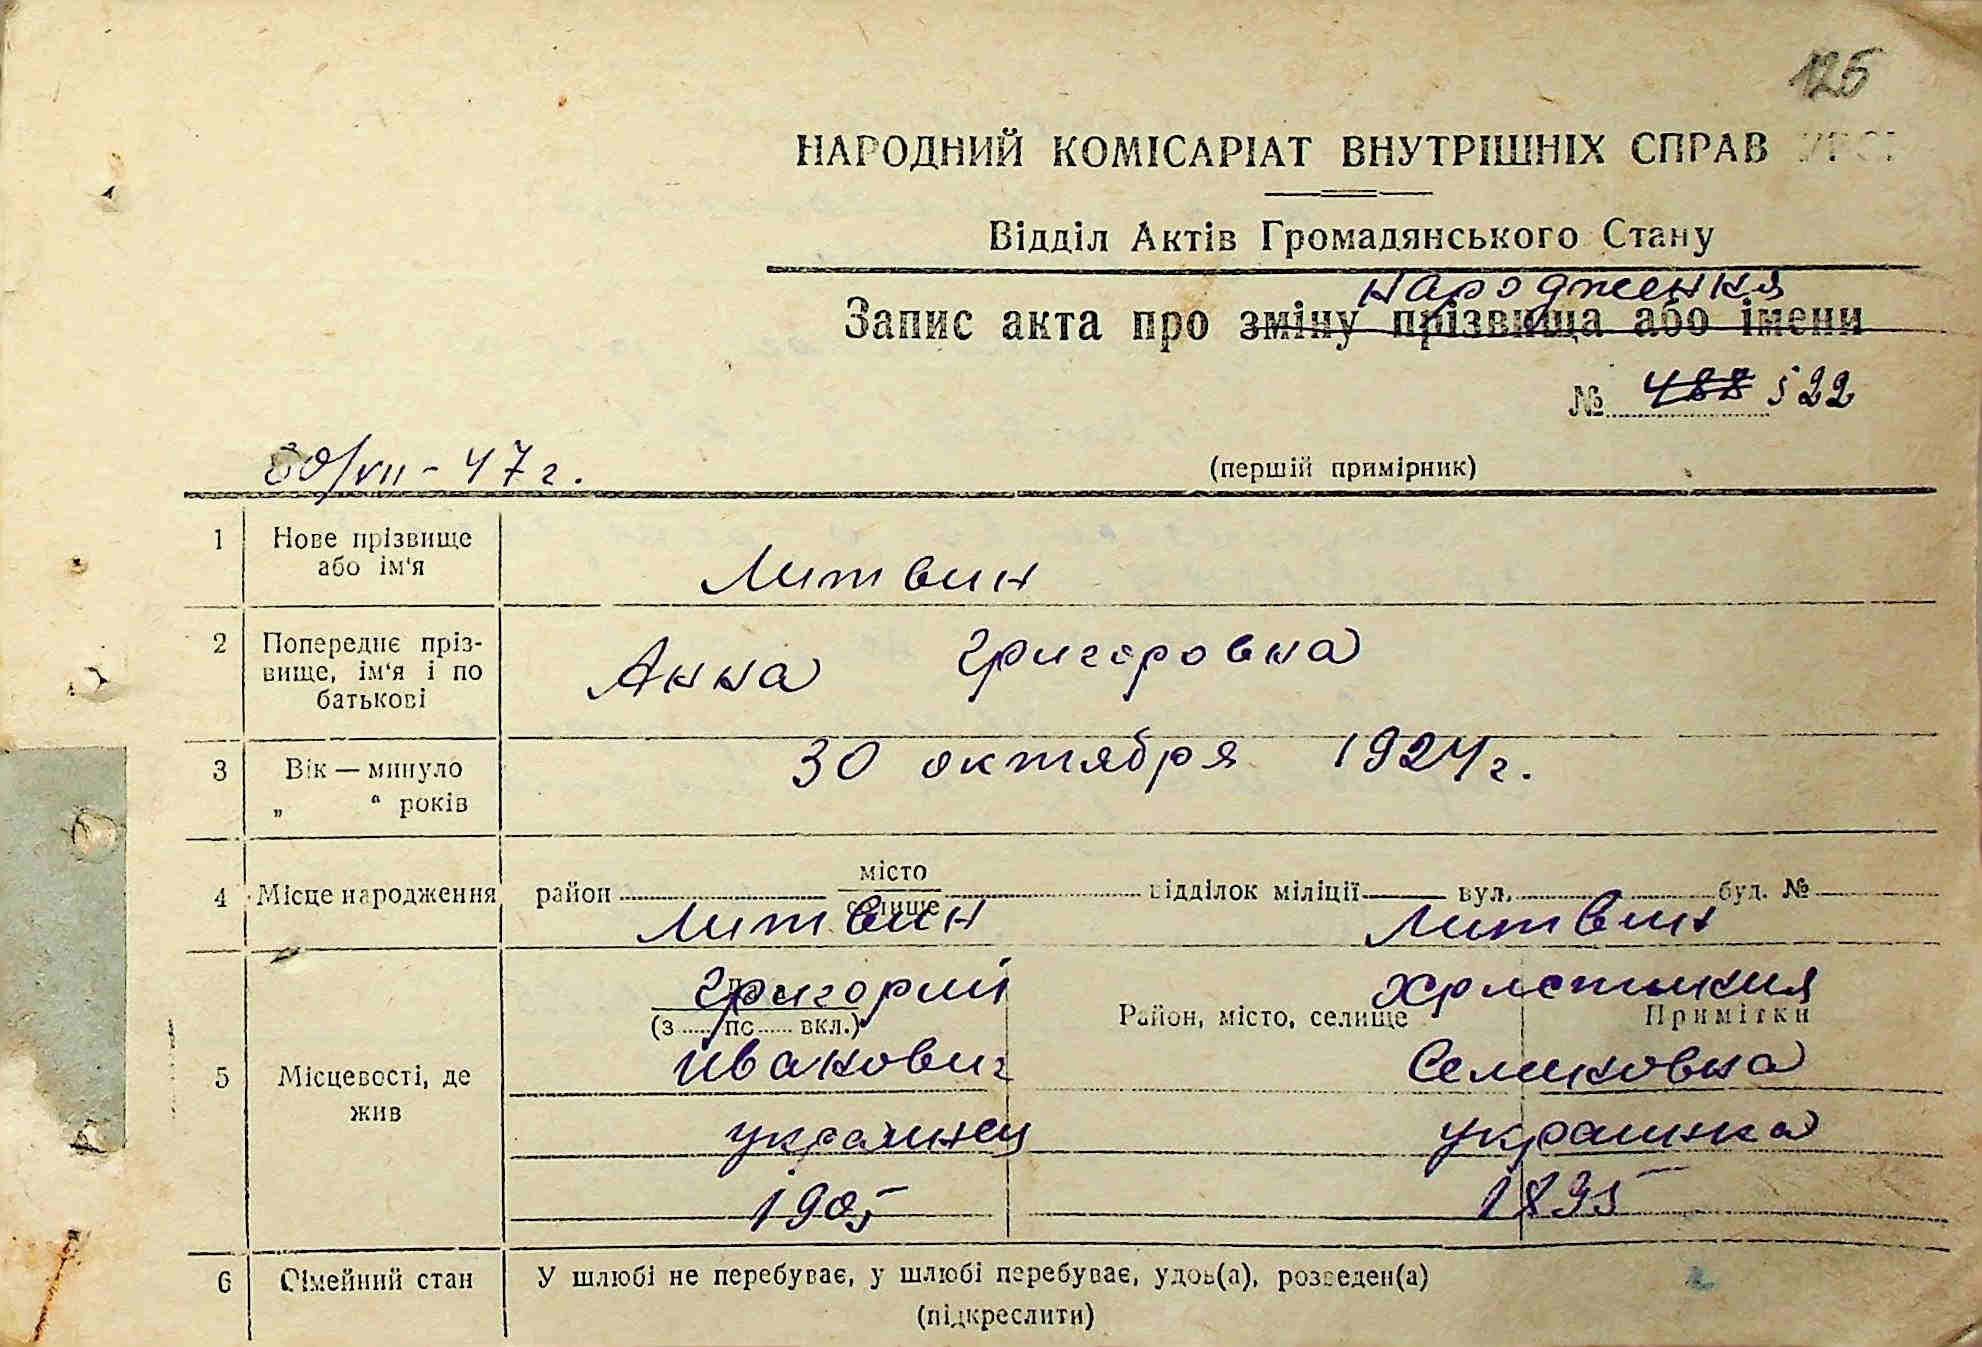 125
НАРОДНИЙ КОМІСАРІАТ ВНУТРІШНІХ СПРАВ УРСР
Відділ Актів Громадянського Стану
народження
Запис акта про зміну прізвища або імени
№ 488 522
30/VII - 47 г.
(першій примірник)
1 Нове прізвище або ім'я
Литвин
2 Попереднє пріз-
вище, ім'я і по
батькові
Анна Григоровна
3 Вік — минуло
„ “ років
30 октября 1924 г.
4 Місце народження район місто селище відділок міліції вул. буд. №
Литвин Литвин
Григорий Христиния
(з по вкл.) Район, місто, селище Примітки
5 Місцевості, де
жив
Иванович Семиновна
украинец украинка
1905 1895
6 Сімейний стан У шлюбі не перебуває, у шлюбі перебуває, удов(а), розведен(а)
(підкреслити)